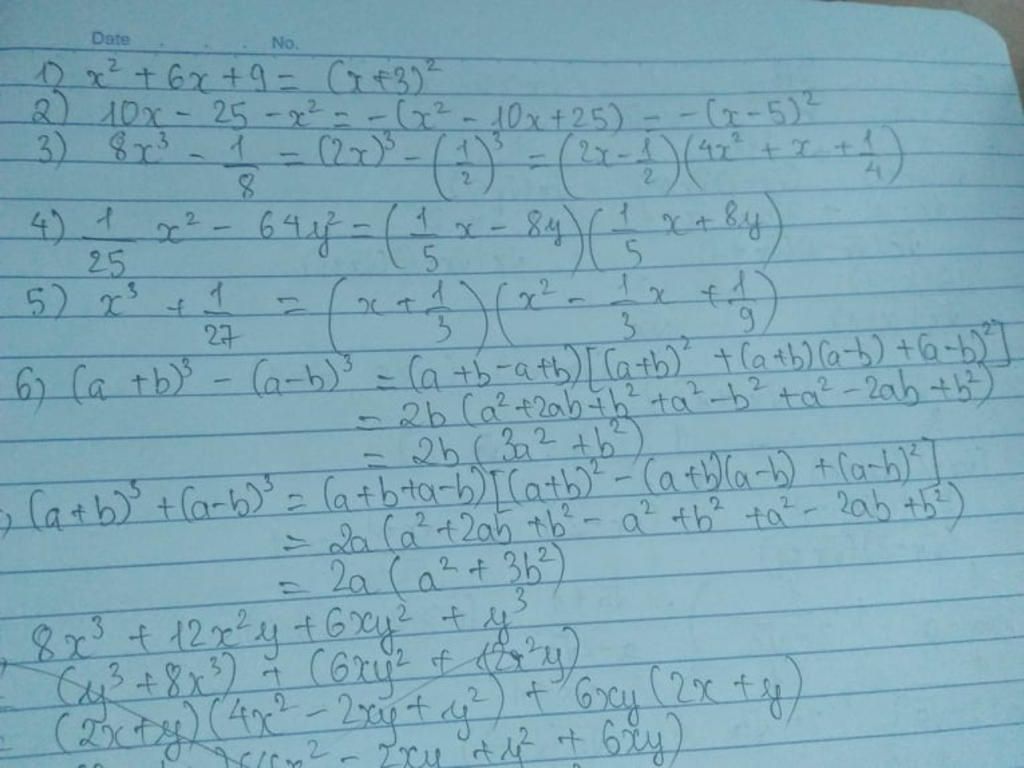 Date No.
1) x² + 6x + 9 = (x+3)²
2) 10x - 25 - x² = -(x² - 10x + 25) - -(x-5)²
3) 8x³ - 1/8 = (2x)³ - (1/2)³ = (2x - 1/2)(4x² + x + 1/4)
4) 1/25 x² - 64y² = (1/5 x - 8y)(1/5 x + 8y)
5) x³ + 1/27 = (x + 1/3)(x² - 1/3 x + 1/9)
6) (a+b)³ - (a-b)³ = (a+b-a+b)[(a+b)² + (a+b)(a-b) + (a-b)²]
= 2b (a²+2ab+b² +a²-b² +a²-2ab +b²)
= 2b (3a² +b²)
(a+b)³ + (a-b)³ = (a+b+a-b)[(a+b)² - (a+b)(a-b) + (a-b)²]
= 2a (a²+2ab +b² - a² +b² +a² - 2ab +b²)
= 2a (a² + 3b²)
8x³ + 12x²y + 6xy² + y³
(y³ + 8x³) + (6xy² + 12x²y)
(2x+y)(4x² - 2xy + y²) + 6xy (2x + y)
x² - 2xy + y² + 6xy)